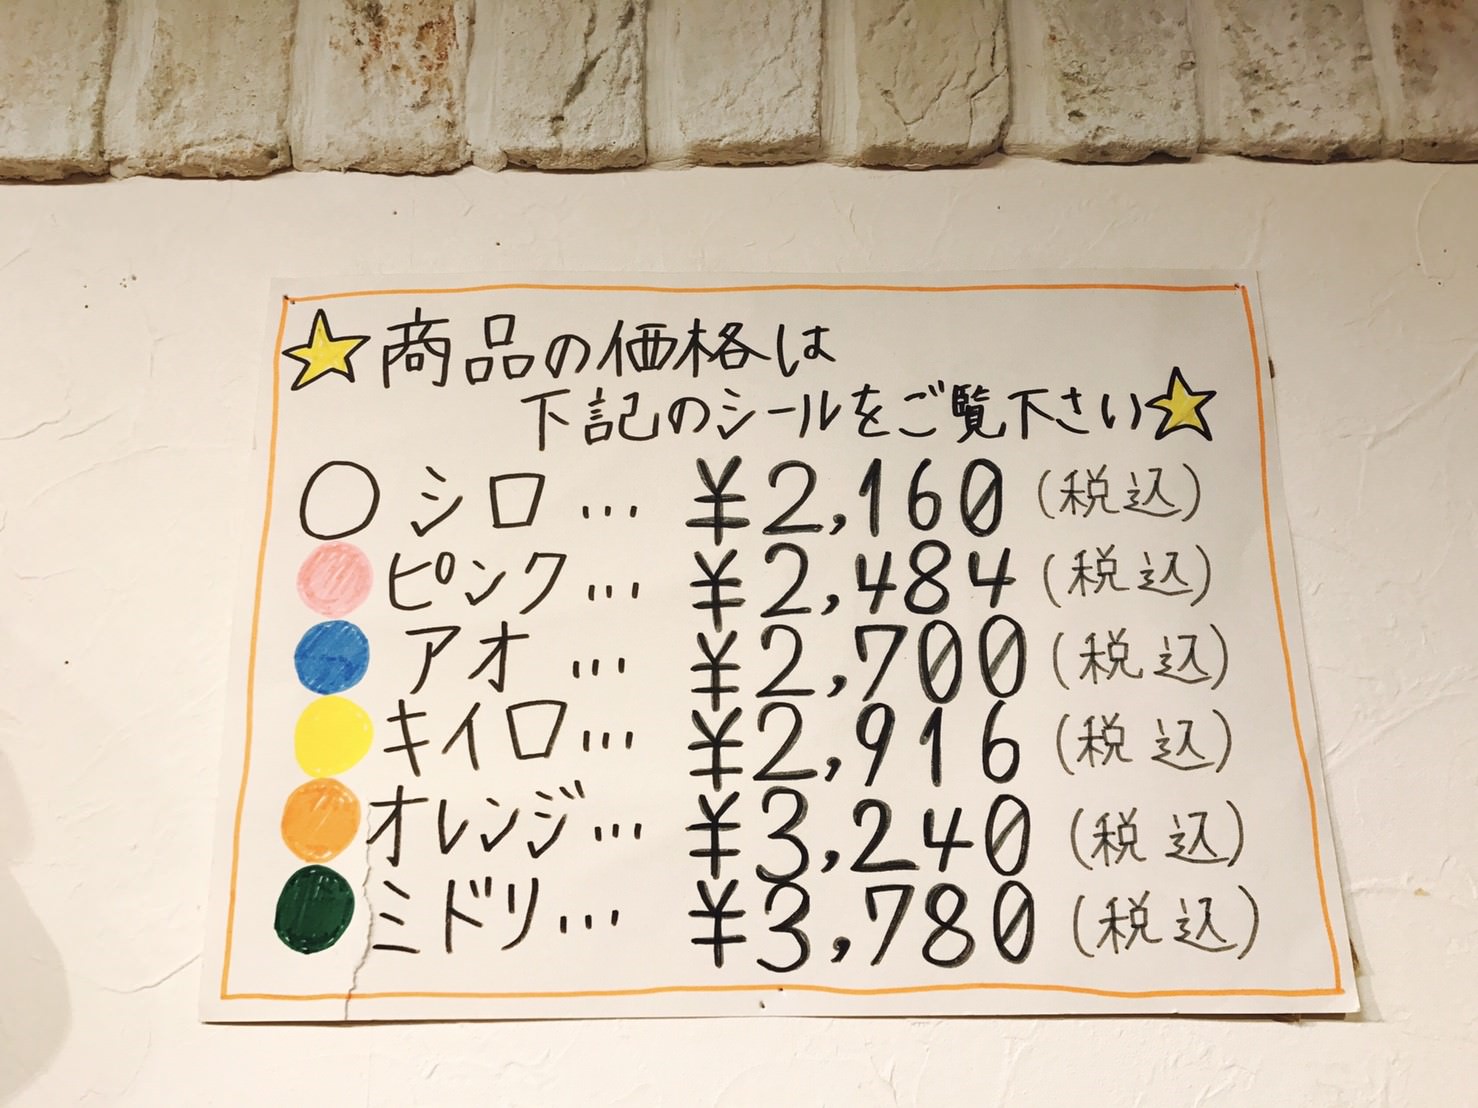 ★商品の価格は
下記のシールをご覧下さい★
○シロ… ¥2,160(税込)
ピンク… ¥2,484(税込)
アオ… ¥2,700(税込)
キイロ… ¥2,916(税込)
オレンジ… ¥3,240(税込)
ミドリ… ¥3,780(税込)